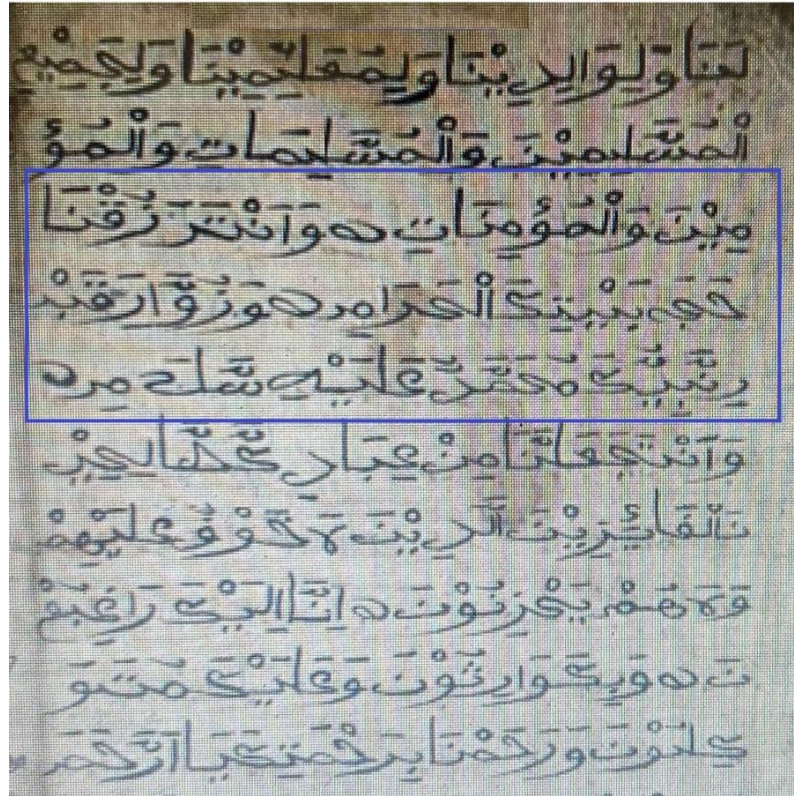 لَنَا وَلِوَالِدِيْنَا وَلِمُعَلِّمِيْنَا وَلِجَمِيْعِ
الْمُسْلِمِيْنَ وَالْمُسْلِمَاتِ وَالْمُؤْ
مِنِيْنَ وَالْمُؤْمِنَاتِ ه وَاَنْ تَرْزُقْنَا
حَجَّ بَيْتِكَ الْحَرَامِ ه وَزُوَّارَ قَبْ
رِ نَبِيِّكَ مُحَمَّدٍ عَلَيْهِ سَلَام ه
وَاَنْ تَجْعَلَنَا مِنْ عِبَادِكَ الصَّالِحِيْ
نَ الْفَائِزِيْنَ الَّذِيْنَ لَا خَوْفٌ عَلَيْهِمْ
وَلَا هُمْ يَحْزَنُوْنَ ه اِنَّا اِلَيْكَ رَاغِبُوْ
نَ ه وَبِكَ وَاثِقُوْنَ وَعَلَيْكَ مُتَوَ
كِّلُوْنَ وَرَحْمَنَا بِرَحْمَتِكَ يَا اَرْحَمَ